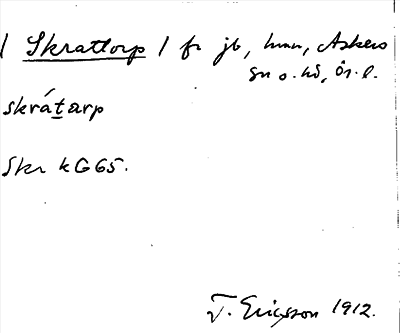 / Skrattorp / fr jb, hmn, Askers
sn o. hd, Ör. l.
skrátarp
Skr kG65.
T. Ericsson 1912.